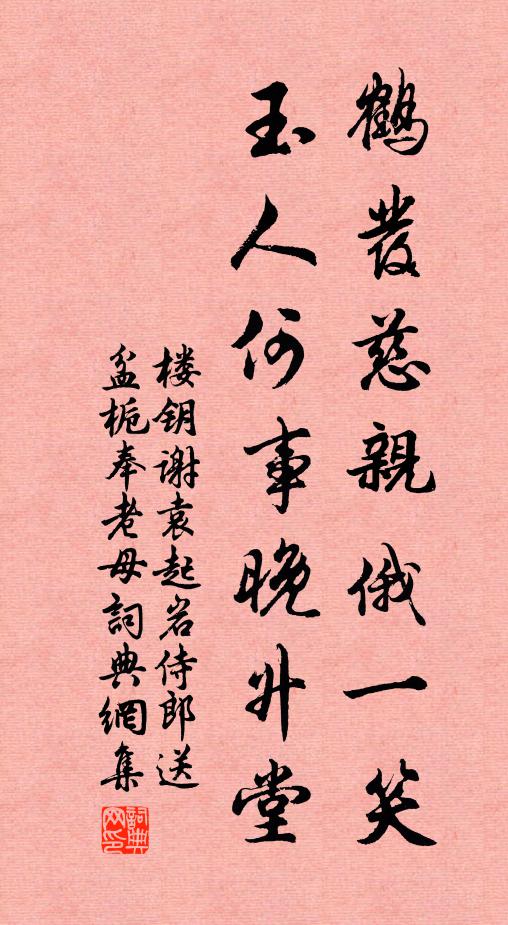 鶴發慈親俄一笑
玉人何事晚升堂
楼钥谢袁起岩侍郎送
盆栀奉老母詞典網集
詞典
网印